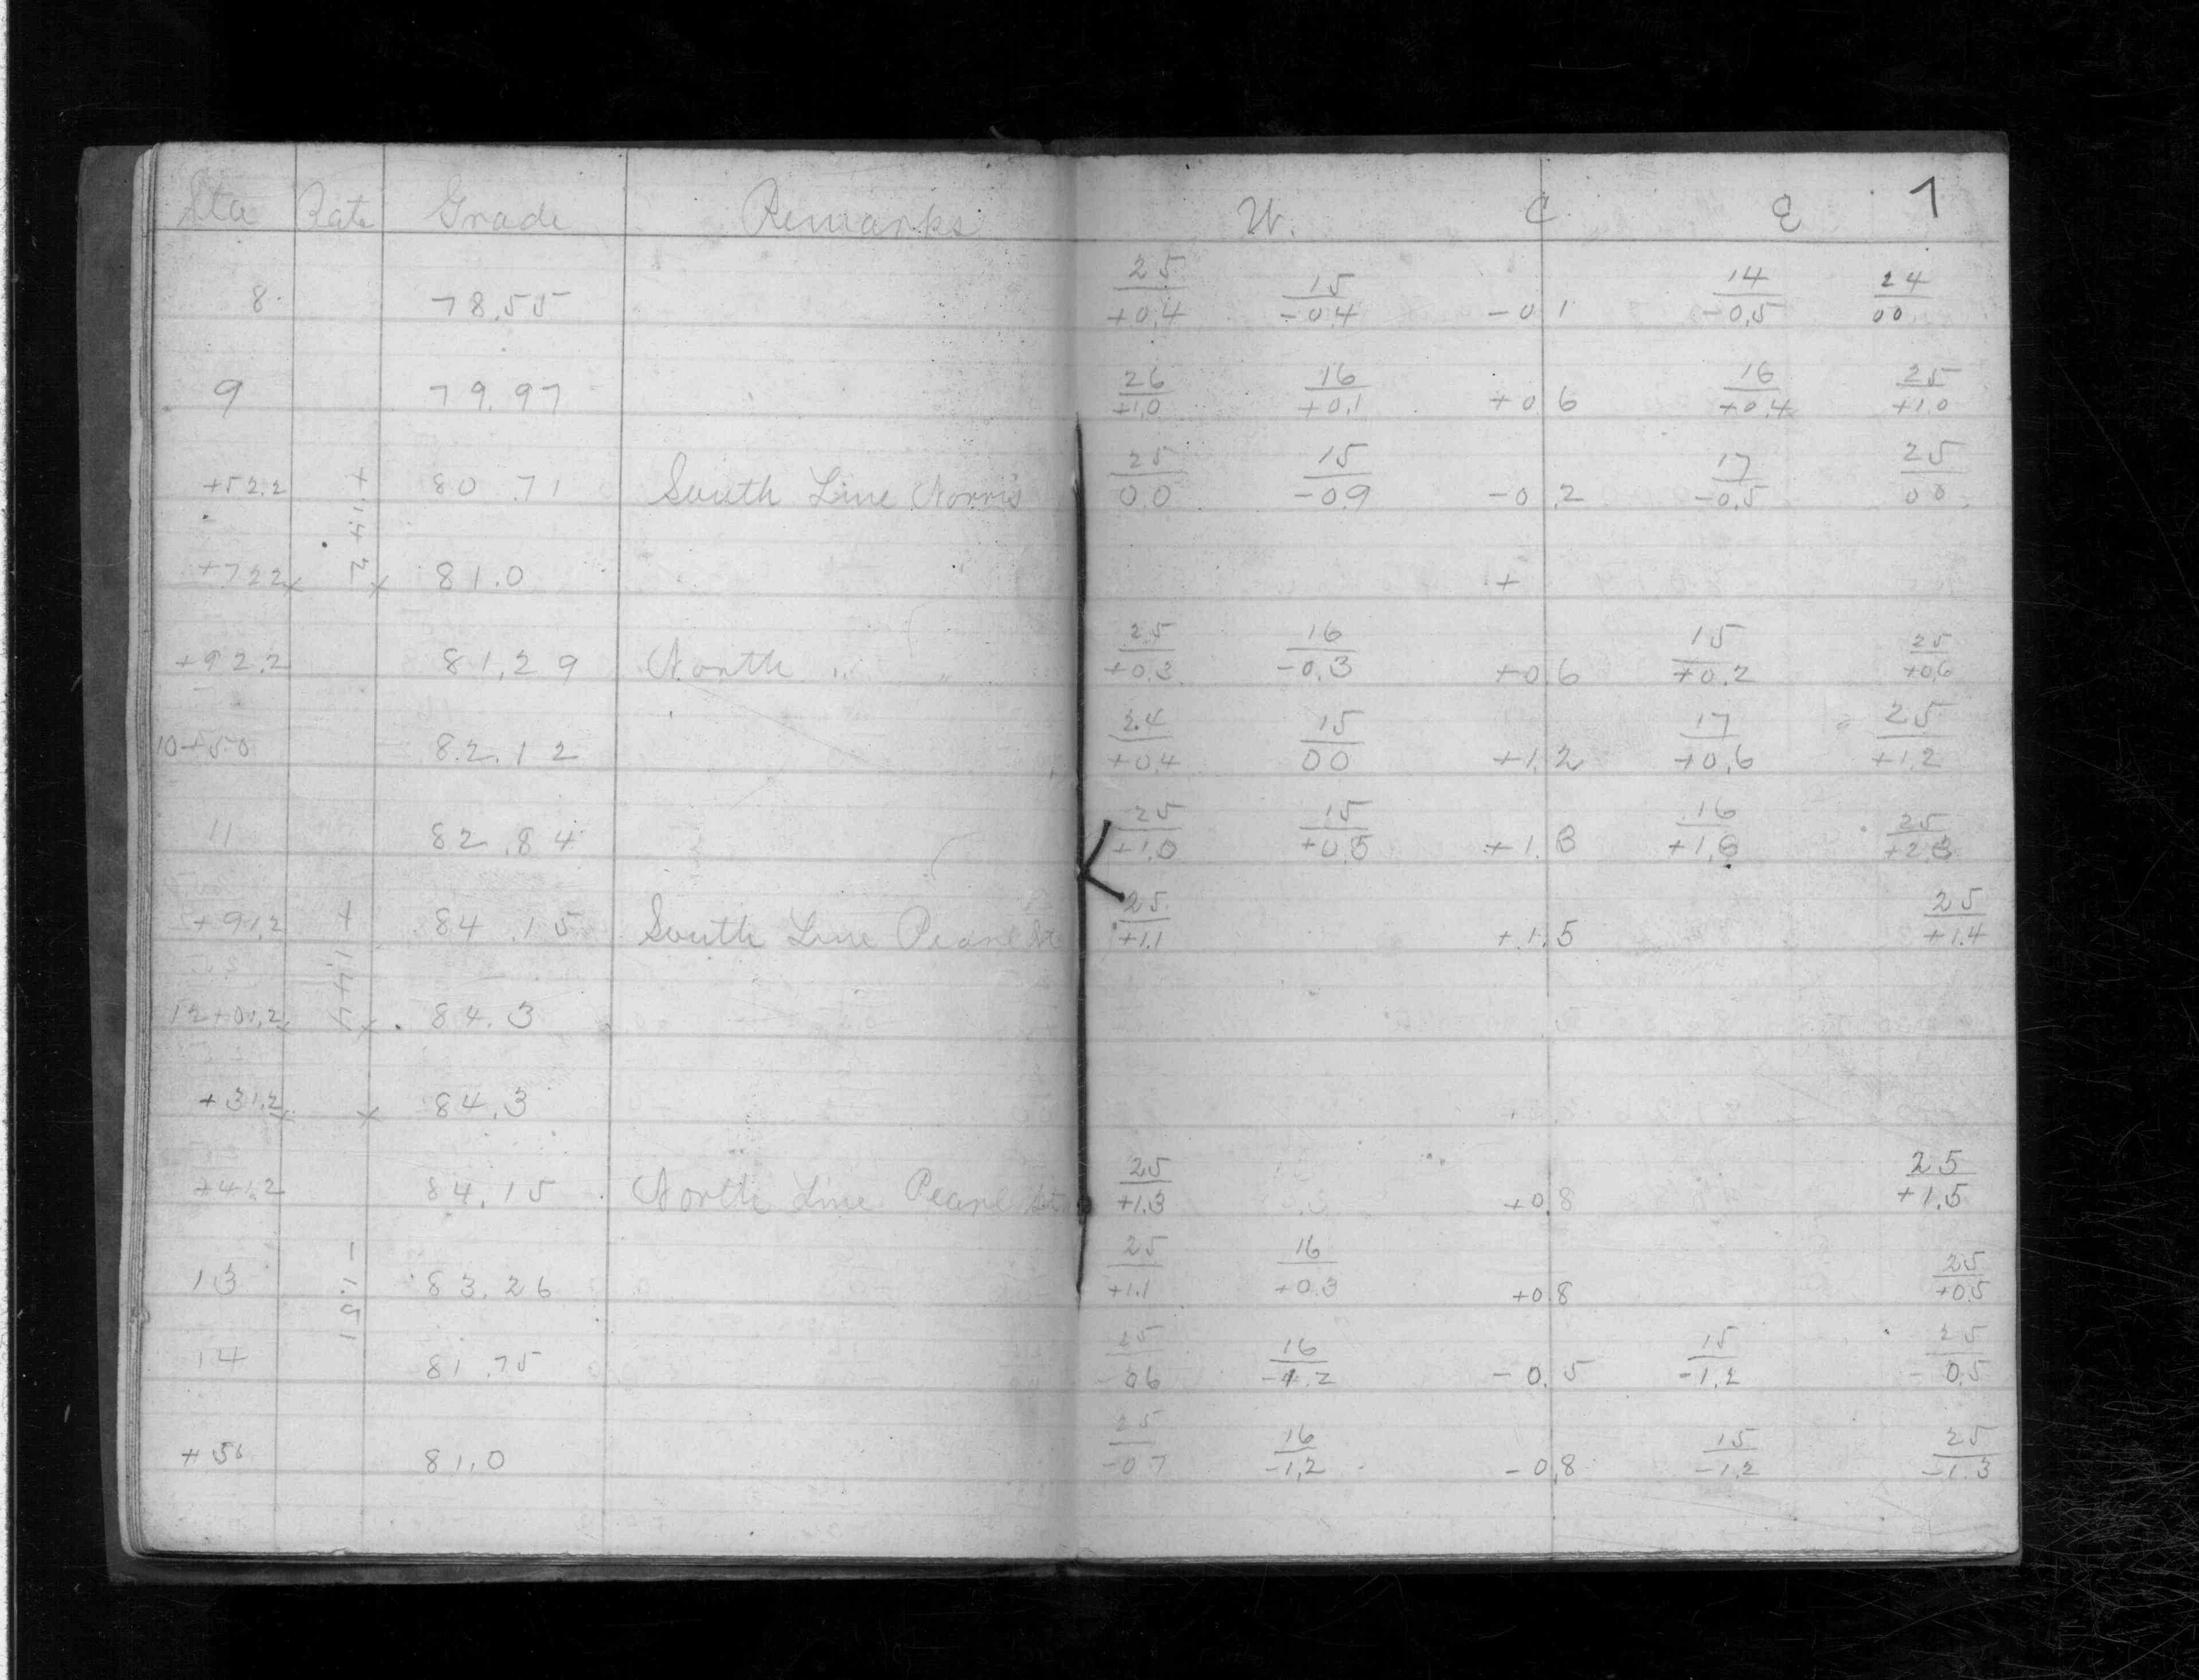 Sta Rate Grade Remarks W. C E 7
8 78.55 25/+0.4 15/-0.4 -0.1 14/-0.5 24/00
9 79.97 26/+1.0 16/+0.1 +0.6 16/+0.4 25/+1.0
+52.2 +1.42 80.71 South Line Norris 25/00 15/-0.9 -0.2 17/-0.5 25/00
+72.2 81.0 +
+92.2 81.29 North " " 25/+0.3 16/-0.3 +0.6 15/+0.2 25/+0.6
10+50 82.12 24/+0.4 15/00 +1.2 17/+0.6 25/+1.2
11 82.84 25/+1.0 15/+0.5 +1.3 16/+1.3 25/+2.3
+91.2 +1.44 84.15 South Line Pearl St 25/+1.1 +1.5 25/+1.4
12+01.2 84.3
+31.2 84.3
+41.2 84.15 North Line Pearl St. 25/+1.3 +0.8 25/+1.5
13 -1.51 83.26 25/+1.1 16/+0.3 +0.8 25/+0.5
14 81.75 25/-0.6 16/-1.2 -0.5 15/-1.2 25/-0.5
+50 81.0 25/-0.7 16/-1.2 -0.8 15/-1.2 25/-1.3